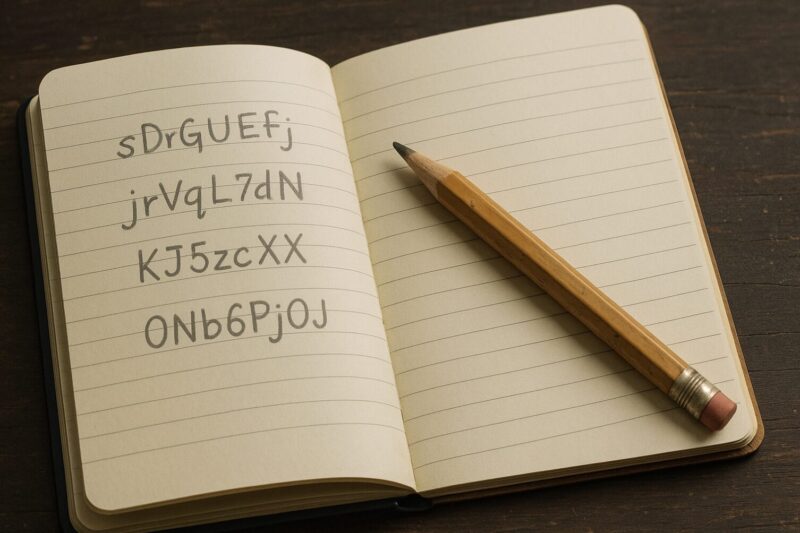 sDrGUEfj
jrVqL7dN
KJ5zcXX
0Nb6Pj0J